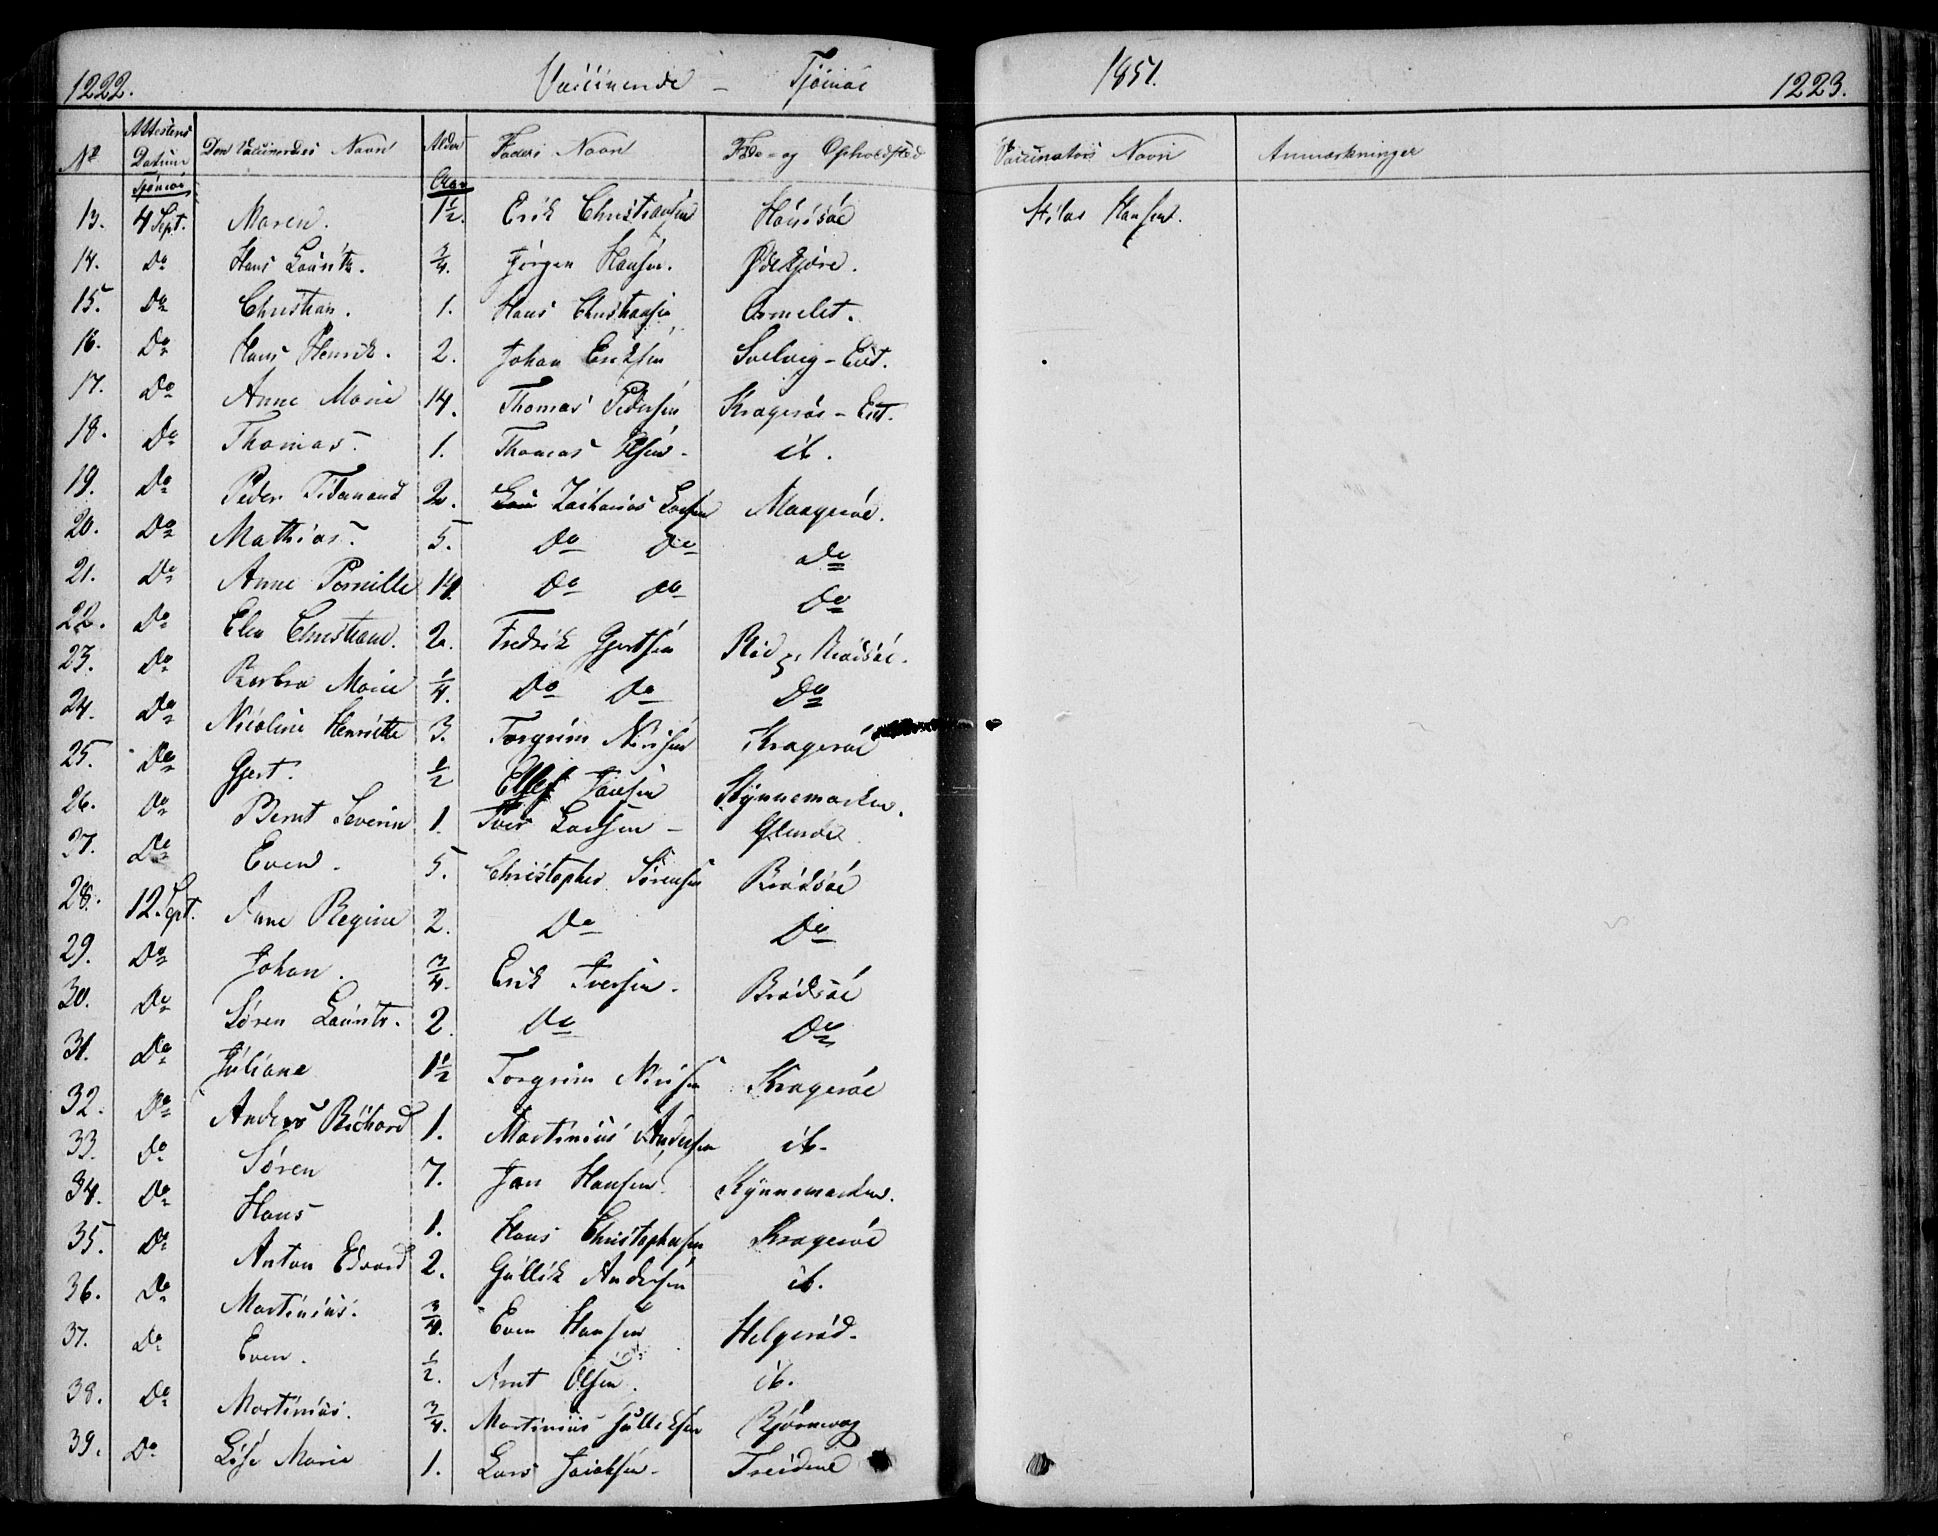 1222. Vaccinerede – Tjömöe 1851. 1223.
No Attestens Datum Den Vaccineredes Navn Alder Faders Navn Føde- og Opholdssted Vaccinators Navn Anmærkninger
Tjömöe Aar
13. 4 Sept. Maren. 1½. Erik Christiansen Hansen.
14. Do Hans Lauritz. ¾. Jørgen Hansen.
15. Do Christian. 1. Hans Christiansen Ormelet.
16. Do Hans Henrik. 2. Johan Eriksen Solvig – Eiet.
17. Do Anne Marie 14. Thomas Pedersen Kragerøe – Eiet.
18. Do Thomas. 1. Thomas Olsen – ib.
19. Do Peder Ferdinand 2. Zacharias Larsen Maagerøe.
20. Do Mathias. 5. Do Do Do
21. Do Anne Pernille 14. Do Do Do
22. Do Elen Christiane. 2. Fredrik Gjertsen Rød p. Brødsøe.
23. Do Barbra Marie ¼. Do Do Do
24. Do Nicoline Henriette 3. Torgrim Nirisen Kragerøe
25. Do Gjert. ½ Ellef Jansen Kynnemarken.
26. Do Bernt Severin 1. Iver Larsen – Glende
27. Do Even. 5. Christopher Sørensen Brødsøe
28. 12. Sept. Anne Regine 2. Do Do
29. Do Johan. ¾. Erik Iversen. Brødsøe
30. Do Søren Lauritz. 2. Do Do
31. Do Juliane 1½ Torgrim Nirisen Kragerøe
32. Do Anders Richard 1. Martinius Andersen ib.
33. Do Søren 7. Jan Hansen. Kynnemarken.
34. Do Hans 1. Hans Christophersen Kragerøe
35. Do Anton Edvard 2. Gullik Andersen ib.
36. Do Martinius. ¾. Even Hansen Helgerød.
37. Do Even. ½. Arnt Olsen. ib.
38. Do Martinius. ¾. Martinius Gulliksen Bjørnevag
39. Do Lise Marie 1. Lars Jacobsen – Treidene